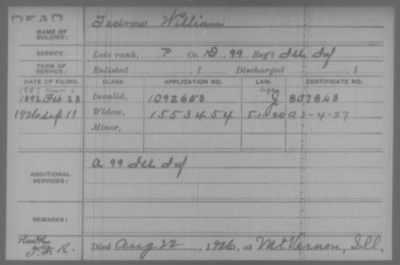 DEAD
NAME OF SOLDIER: Williams
SERVICE: Late rank, P Co. D, 99 Reg't Ill Inf
TERM OF SERVICE: Enlisted 1 Discharged 1
DATE OF FILING. CLASS APPLICATION NO. LAW. CERTIFICATE NO.
1892 Feb Invalid, 1092658 807848
1926 Sep 11 Widow, 1553454 4-27
Minor,
ADDITIONAL SERVICES: a 99 Ill Inf
REMARKS:
Died Aug 22, 1926, at Mt Vernon, Ill.